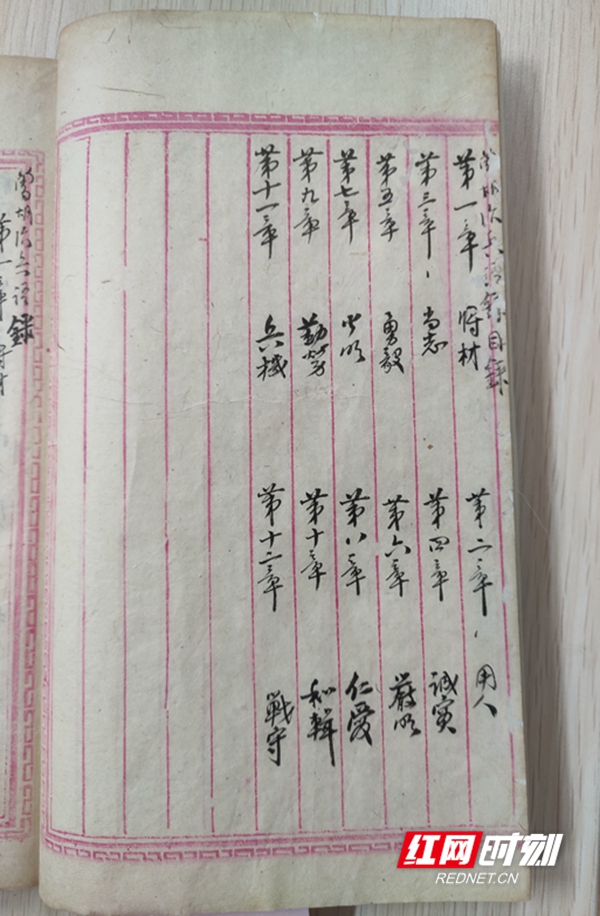 曾胡治兵語錄目錄
第一章 将材 第二章 用人
第三章 尚志 第四章 誠實
第五章 勇毅 第六章 嚴明
第七章 公明 第八章 仁愛
第九章 勤勞 第十章 和輯
第十一章 兵機 第十二章 戰守
曾胡治兵語錄
第一章 将材
红网时刻
REDNET.CN